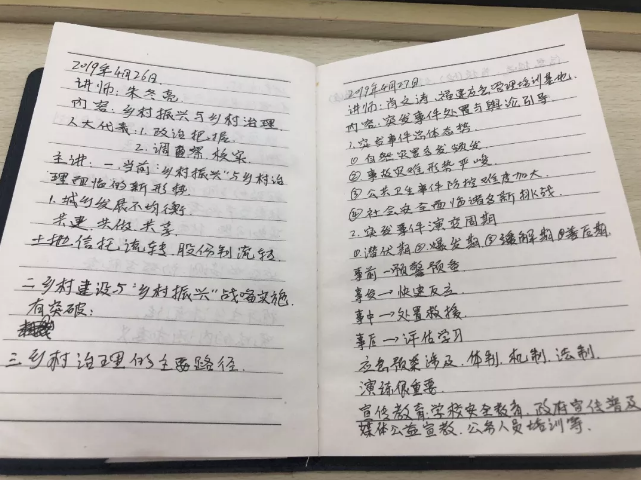 2019年4月26日
讲师：朱冬亮
内容：乡村振兴与乡村治理
人大代表：1.政治把握
2.调查
主讲：一.当前"乡村振兴"与乡村治
理面临的新形势
1.城乡发展不均衡
共建、共做、共享
土地信托流转、股份制流转
二乡村建设与"乡村振兴"战略实施
有突破：
三乡村治理的主要路径.
2019年4月27日
讲师：肖文涛，福建应急管理培训基地
内容：突发事件处置与舆论引导
1.突发事件总体态势
①自然灾害多发频发
②事故灾难形势严峻
③公共卫生事件防控难度加大
④社会安全面临诸多新挑战
2.突发事件演变周期
①潜伏期②爆发期③缓解期④善后期
事前→预警预备
事发→快速反应
事中→处置救援
事后→评估学习
应急预案涉及、体制、机制、法制.
演练很重要
宣传教育.学校安全教育、政府宣传普及
媒体公益宣教、公务人员培训等.